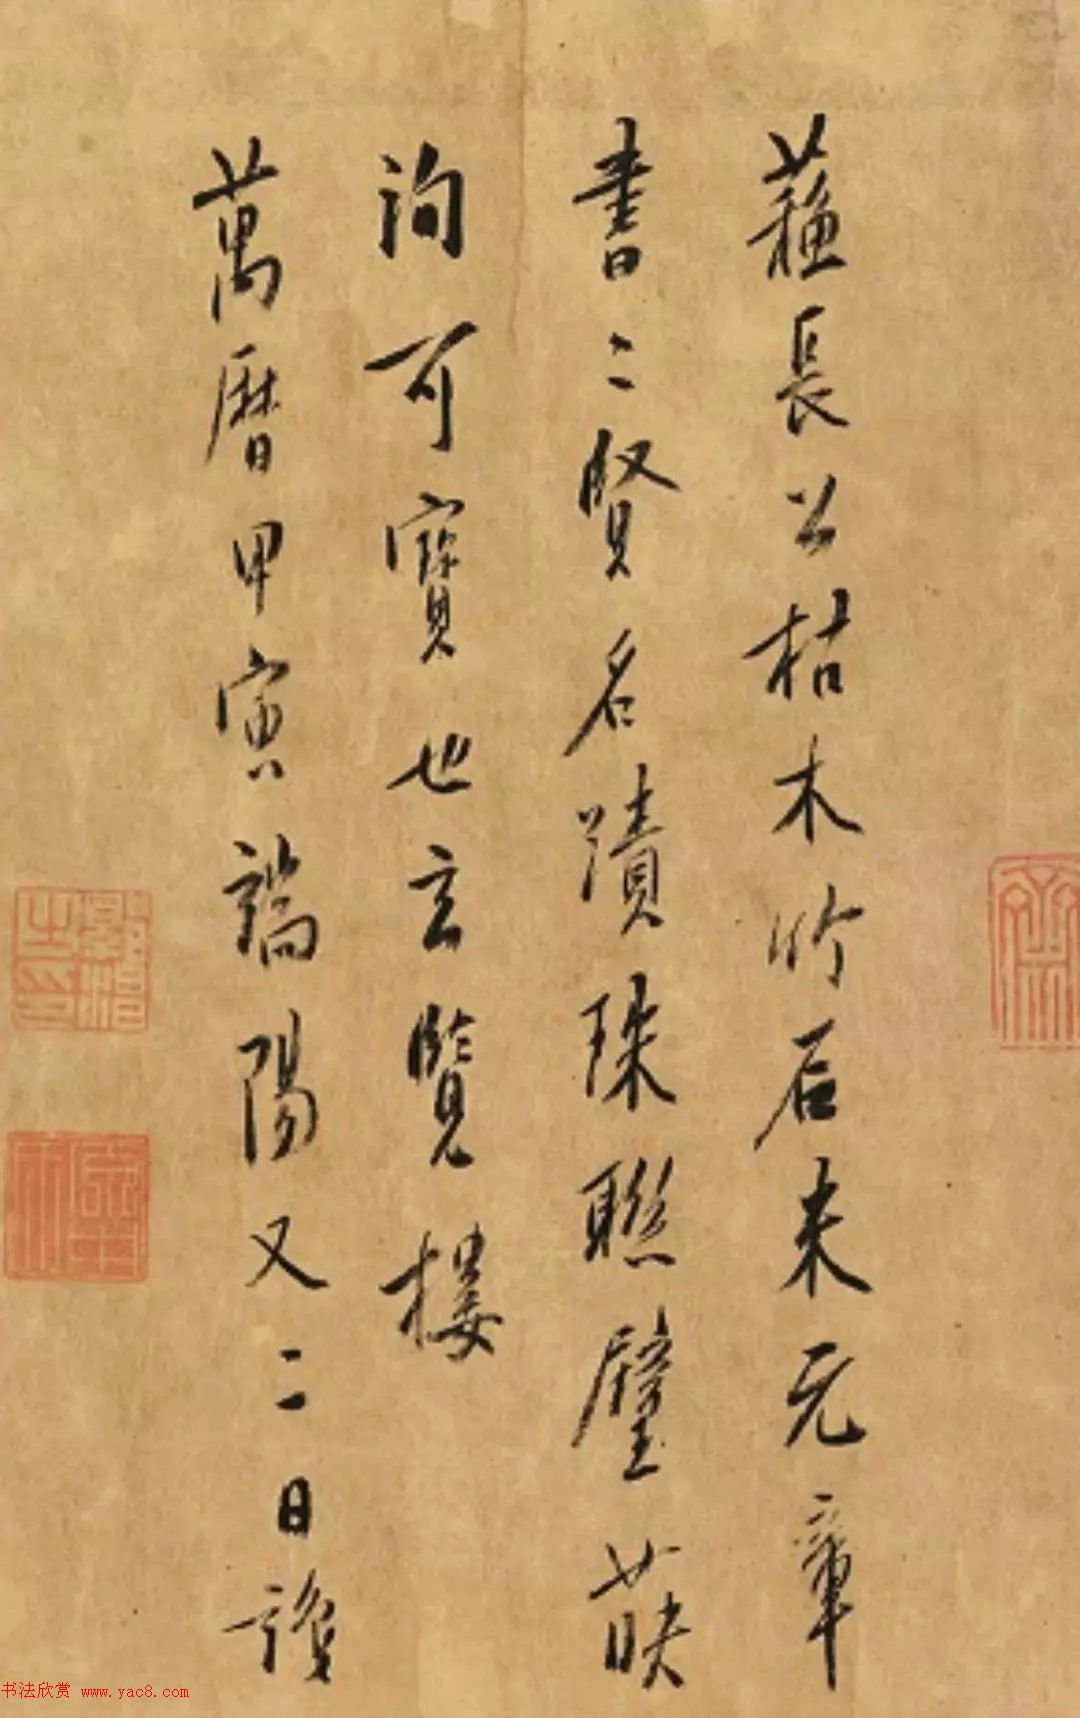 蘓長公枯木竹石米元章
書二賢名蹟珠聯璧暎
洵可寶也玄覽樓
萬曆甲寅端陽又二日識
書法欣賞 www.yac8.com